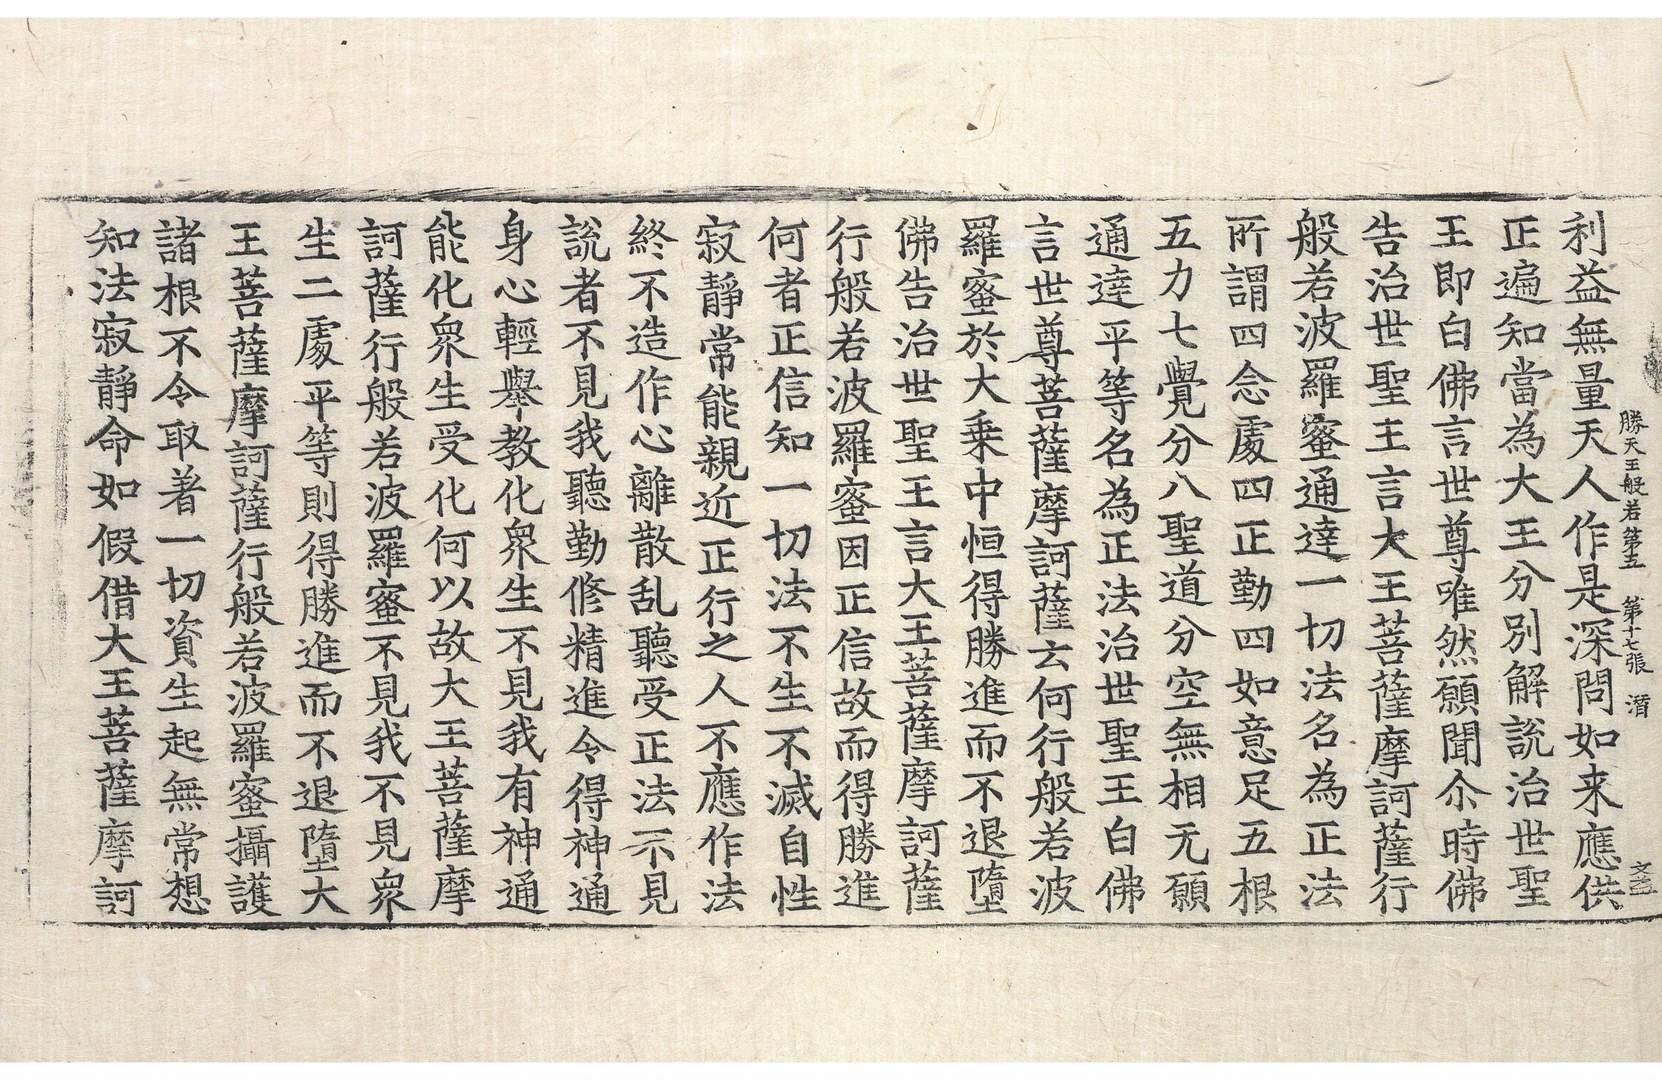 勝天王般若第五　第十七張　潛
利益無量天人作是深問如来應供
正遍知當為大王分別解說治世聖
王即白佛言世尊唯然願聞尒時佛
告治世聖王言大王菩薩摩訶薩行
般若波羅蜜通達一切法名為正法
所謂四念處四正勤四如意足五根
五力七覺分八聖道分空無相无願
通達平等名為正法治世聖王白佛
言世尊菩薩摩訶薩云何行般若波
羅蜜於大乗中恒得勝進而不退墮
佛告治世聖王言大王菩薩摩訶薩
行般若波羅蜜因正信故而得勝進
何者正信知一切法不生不滅自性
寂靜常能親近正行之人不應作法
終不造作心離散乱聽受正法不見
說者不見我聽勤修精進令得神通
身心輕舉教化衆生不見我有神通
能化衆生受化何以故大王菩薩摩
訶薩行般若波羅蜜不見我不見衆
生二處平等則得勝進而不退墮大
王菩薩摩訶薩行般若波羅蜜攝護
諸根不令取著一切資生起無常想
知法寂靜命如假借大王菩薩摩訶